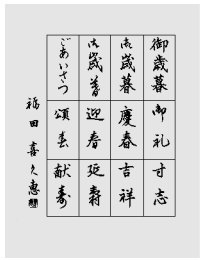 御歳暮
御礼
寸志
御歳暮
慶春
吉祥
御歳暮
迎春
延寿
ごあいさつ
頌春
献寿
福田喜久惠